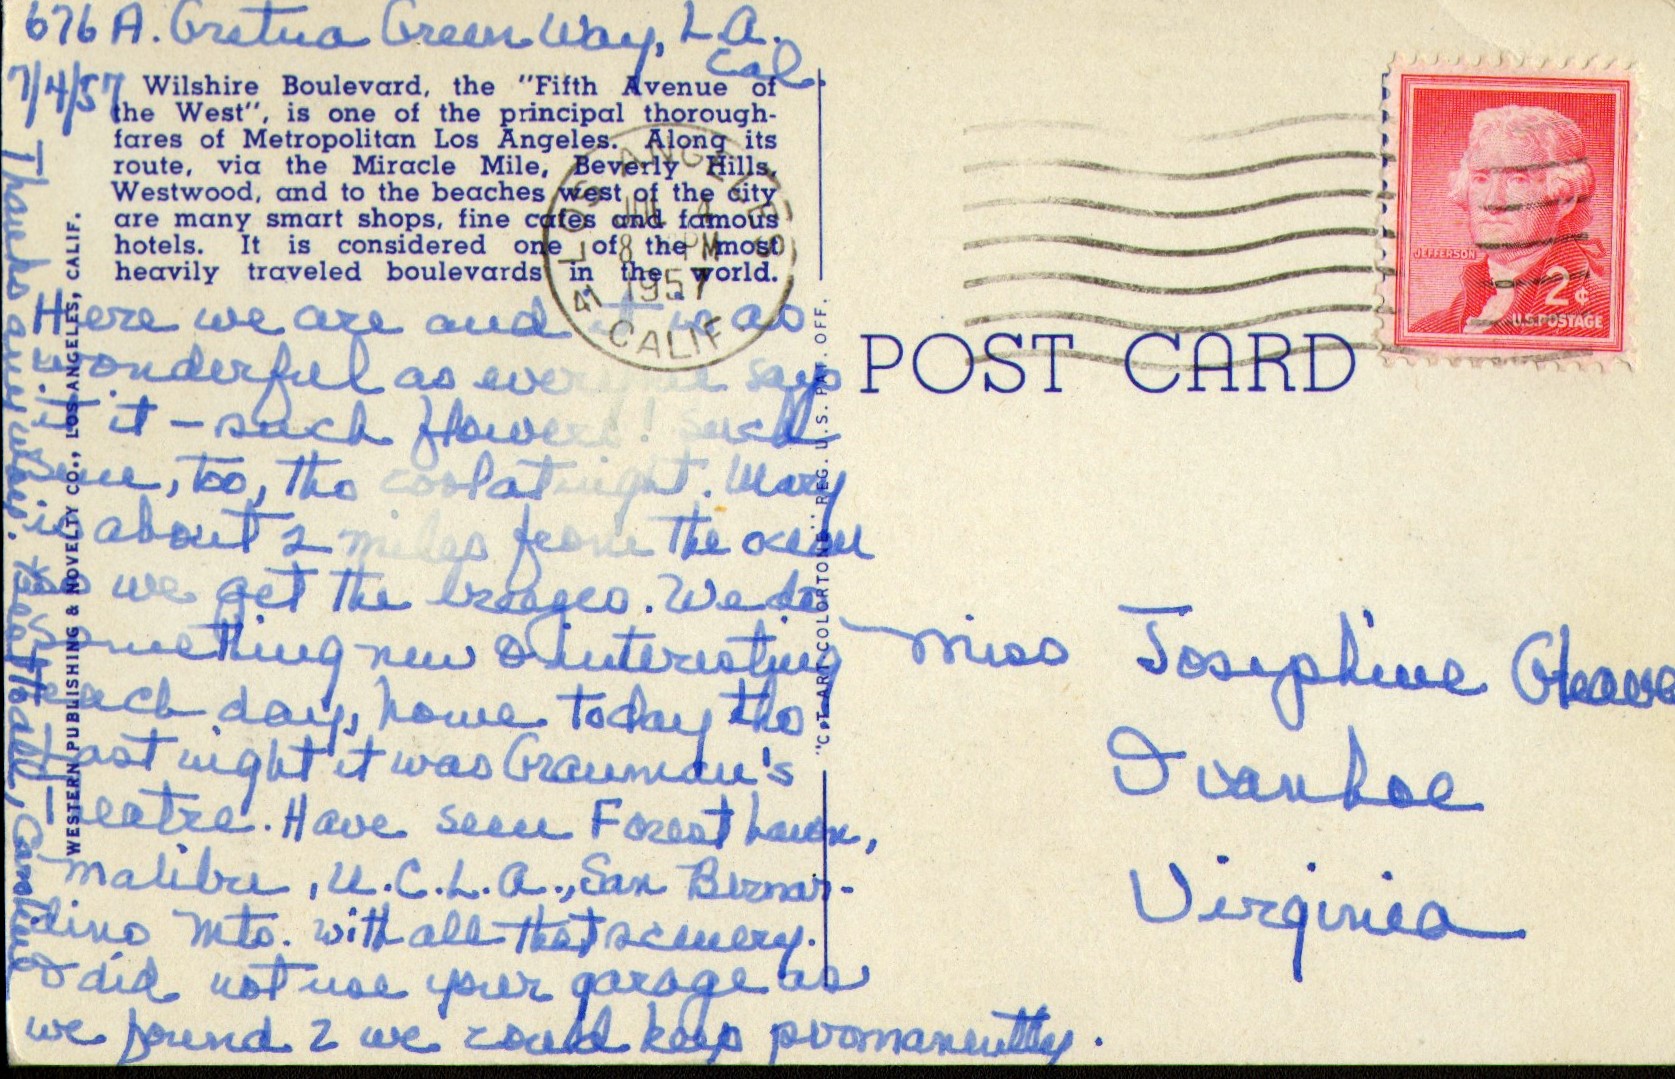 676 A. Gretna Green Way, L.A.
Cal.
7/4/57
Wilshire Boulevard, the "Fifth Avenue of
the West", is one of the principal thorough-
fares of Metropolitan Los Angeles. Along its
route, via the Miracle Mile, Beverly Hills,
Westwood, and to the beaches west of the city
are many smart shops, fine cafes and famous
hotels. It is considered one of the most
heavily traveled boulevards in the world.
LOS ANGELES
JUL 4
8 PM
1957
41 CALIF
JEFFERSON
2¢
U.S. POSTAGE
POST CARD
Here we are and it is as
wonderful as everyone says
it - such flowers! Such
sun, too, tho cool at night. Mary
is about 2 miles from the ocean
so we get the breezes. We do
something new & interesting
each day, home today tho
last night it was Grauman's
Theatre. Have seen Forest Lawn,
Malibu, U.C.L.A., San Bernar-
dino Mts. with all that scenery.
I did not use your garage as
we found 2 we could keep permanently.
Thanks anyway.
to all,
WESTERN PUBLISHING & NOVELTY CO., LOS ANGELES, CALIF.
"C.T. ART-COLORTONE" REG. U.S. PAT. OFF.
Miss Josephine
Ivanhoe
Virginia